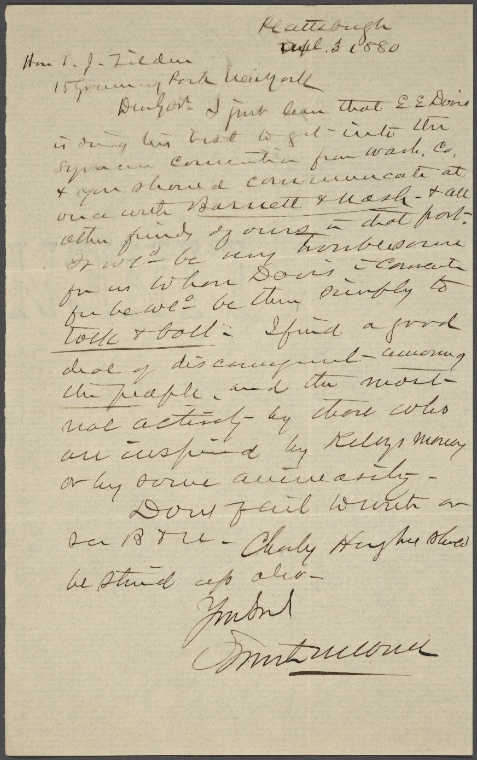 Plattsburgh
Apl. 3 1880
Hon S. J. Tilden
15 Gramercy Park New York
Dear Gov. I just learn that E E Davis
is doing his best to get into the
Syracuse Convention from Wash. Co.
& you should communicate at
once with Barnett & Nash - & all
other friends of ours in that part.
It wld be very troublesome
for us to have Davis in Convention
for he wld be there simply to
talk & bolt - I find a good
deal of discouragement among
the people, and the most
not actively by those who
are inspired by Kelly's money
or by some animosity -
Dont fail to write or
see B & N - Charley Hughes should
be stirred up also -
Your frd
Smith M Weed